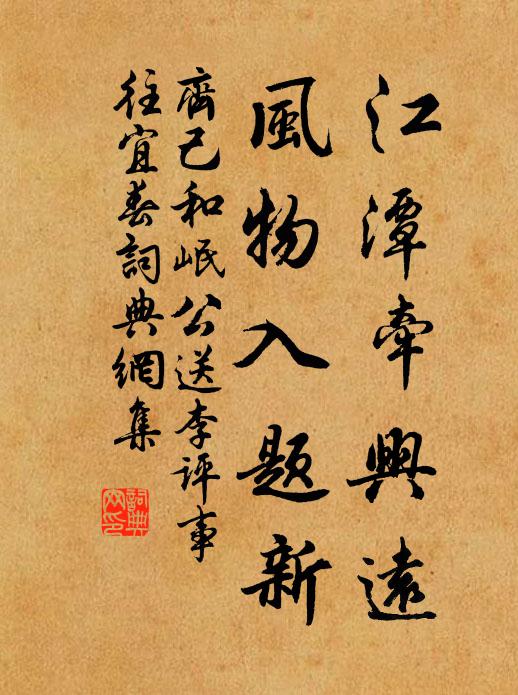 江潭牽興遠
風物入题新
齊己和岷公送李評事
往宜春詞典網集
詞典网印